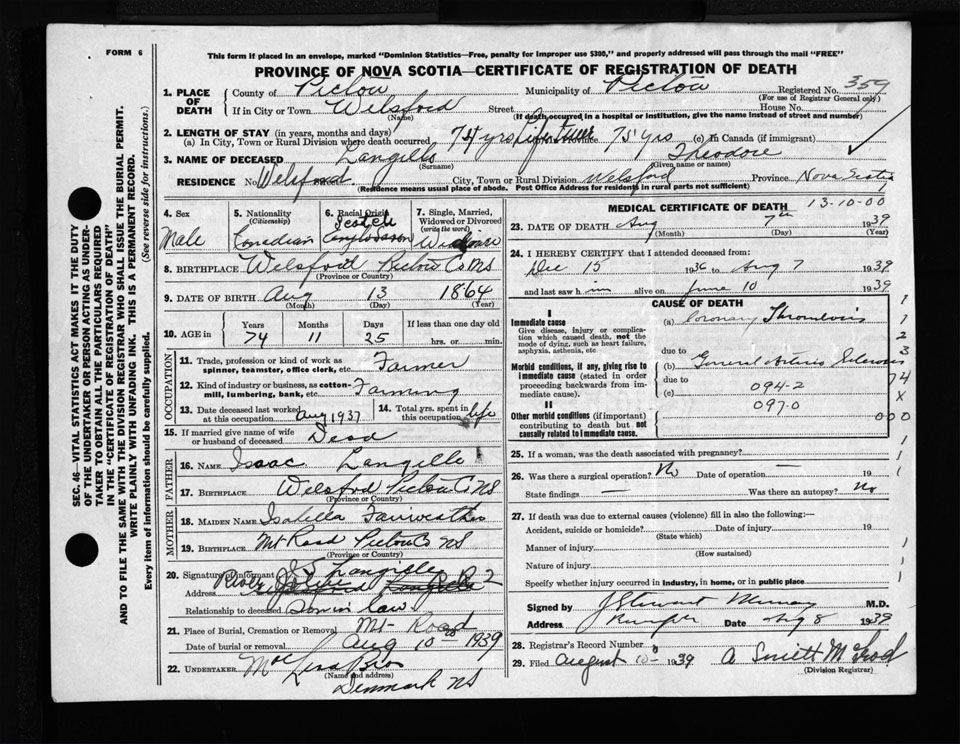 FORM 6
This form if placed in an envelope, marked "Dominion Statistics—Free, penalty for improper use $300," and properly addressed will pass through the mail "FREE"
PROVINCE OF NOVA SCOTIA—CERTIFICATE OF REGISTRATION OF DEATH
SEC. 46—VITAL STATISTICS ACT MAKES IT THE DUTY
OF THE UNDERTAKER OR PERSON ACTING AS UNDER-
TAKER TO OBTAIN ALL THE PARTICULARS REQUIRED
IN THE "CERTIFICATE OF REGISTRATION OF DEATH"
AND TO FILE THE SAME WITH THE DIVISION REGISTRAR WHO SHALL ISSUE THE BURIAL PERMIT.
WRITE PLAINLY WITH UNFADING INK. THIS IS A PERMANENT RECORD.
Every item of information should be carefully supplied. (See reverse side for instructions.)
1. PLACE OF DEATH County of Pictou Municipality of Pictou Registered No. 359
(For use of Registrar General only)
If in City or Town Welsford Street House No.
(Name) (If death occurred in a hospital or institution, give the name instead of street and number)
2. LENGTH OF STAY (in years, months and days)
(a) In City, Town or Rural Division where death occurred 74 yrs lifetime Province 75 yrs (c) in Canada (if immigrant)
3. NAME OF DECEASED Langille Theodore
(Surname) (Given name or names)
RESIDENCE No. Welsford City, Town or Rural Division Welsford Province Nova Scotia
(Residence means usual place of abode. Post Office Address for residents in rural parts not sufficient)
4. Sex Male
5. Nationality (Citizenship) Canadian
6. Racial Origin Scotch Anglo Saxon
7. Single, Married, Widowed or Divorced (write the word)
8. BIRTHPLACE Welsford Pictou Co NS
(Province or Country)
9. DATE OF BIRTH Aug 13 1864
(Month) (Day) (Year)
10. AGE in Years Months Days If less than one day old
74 11 25 hrs. or min.
OCCUPATION
11. Trade, profession or kind of work as spinner, teamster, office clerk, etc. Farmer
12. Kind of industry or business, as cotton-mill, lumbering, bank, etc. Farming
13. Date deceased last worked at this occupation Aug 1937
14. Total yrs. spent in this occupation life
15. If married give name of wife or husband of deceased Dead
FATHER
16. NAME Isaac Langille
17. BIRTHPLACE Welsford Pictou Co NS
(Province or Country)
MOTHER
18. MAIDEN NAME Isabella
19. BIRTHPLACE Mt Road Pictou Co NS
(Province or Country)
20. Signature of informant Langille
Address River R R 2
Relationship to deceased Son in law
21. Place of Burial, Cremation or Removal Mt Road
Date of burial or removal Aug 10 1939
22. UNDERTAKER Bros
(Name and address)
Denmark NS
MEDICAL CERTIFICATE OF DEATH 13-10-00
23. DATE OF DEATH Aug 7th 1939
(Month) (Day) (Year)
24. I HEREBY CERTIFY that I attended deceased from:
Dec 15 1936 to Aug 7 1939
and last saw him alive on June 10 1939
CAUSE OF DEATH
I
Immediate cause (a) Coronary Thrombosis
Give disease, injury or complication which caused death, not the mode of dying, such as heart failure, asphyxia, asthenia, etc
due to
Morbid conditions, if any, giving rise to immediate cause (stated in order proceeding backwards from immediate cause). (b) General Arterio Sclerosis
due to 094-2
(c)
097-0
II
Other morbid conditions (if important) contributing to death but not causally related to immediate cause. 000
1
1
2
3
74
X
25. If a woman, was the death associated with pregnancy?
26. Was there a surgical operation? No Date of operation — 19
State findings — Was there an autopsy? No
27. If death was due to external causes (violence) fill in also the following:—
Accident, suicide or homicide? Date of injury 19
(State which)
Manner of injury
(How sustained)
Nature of injury
Specify whether injury occurred in industry, in home, or in public place
Signed by J Stewart Murray M.D.
Address Date Aug 8 1939
28. Registrar's Record Number
29. Filed August 10 1939
(Division Registrar)